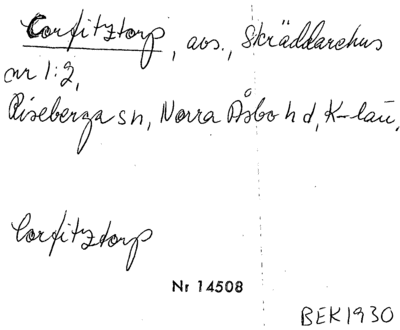 Corfitztorp, avs., Skräddarehus
nr 1:2,
Riseberga sn, Norra Åsbo hd, K-län.
Corfitztorp
Nr 14508
BEK1930